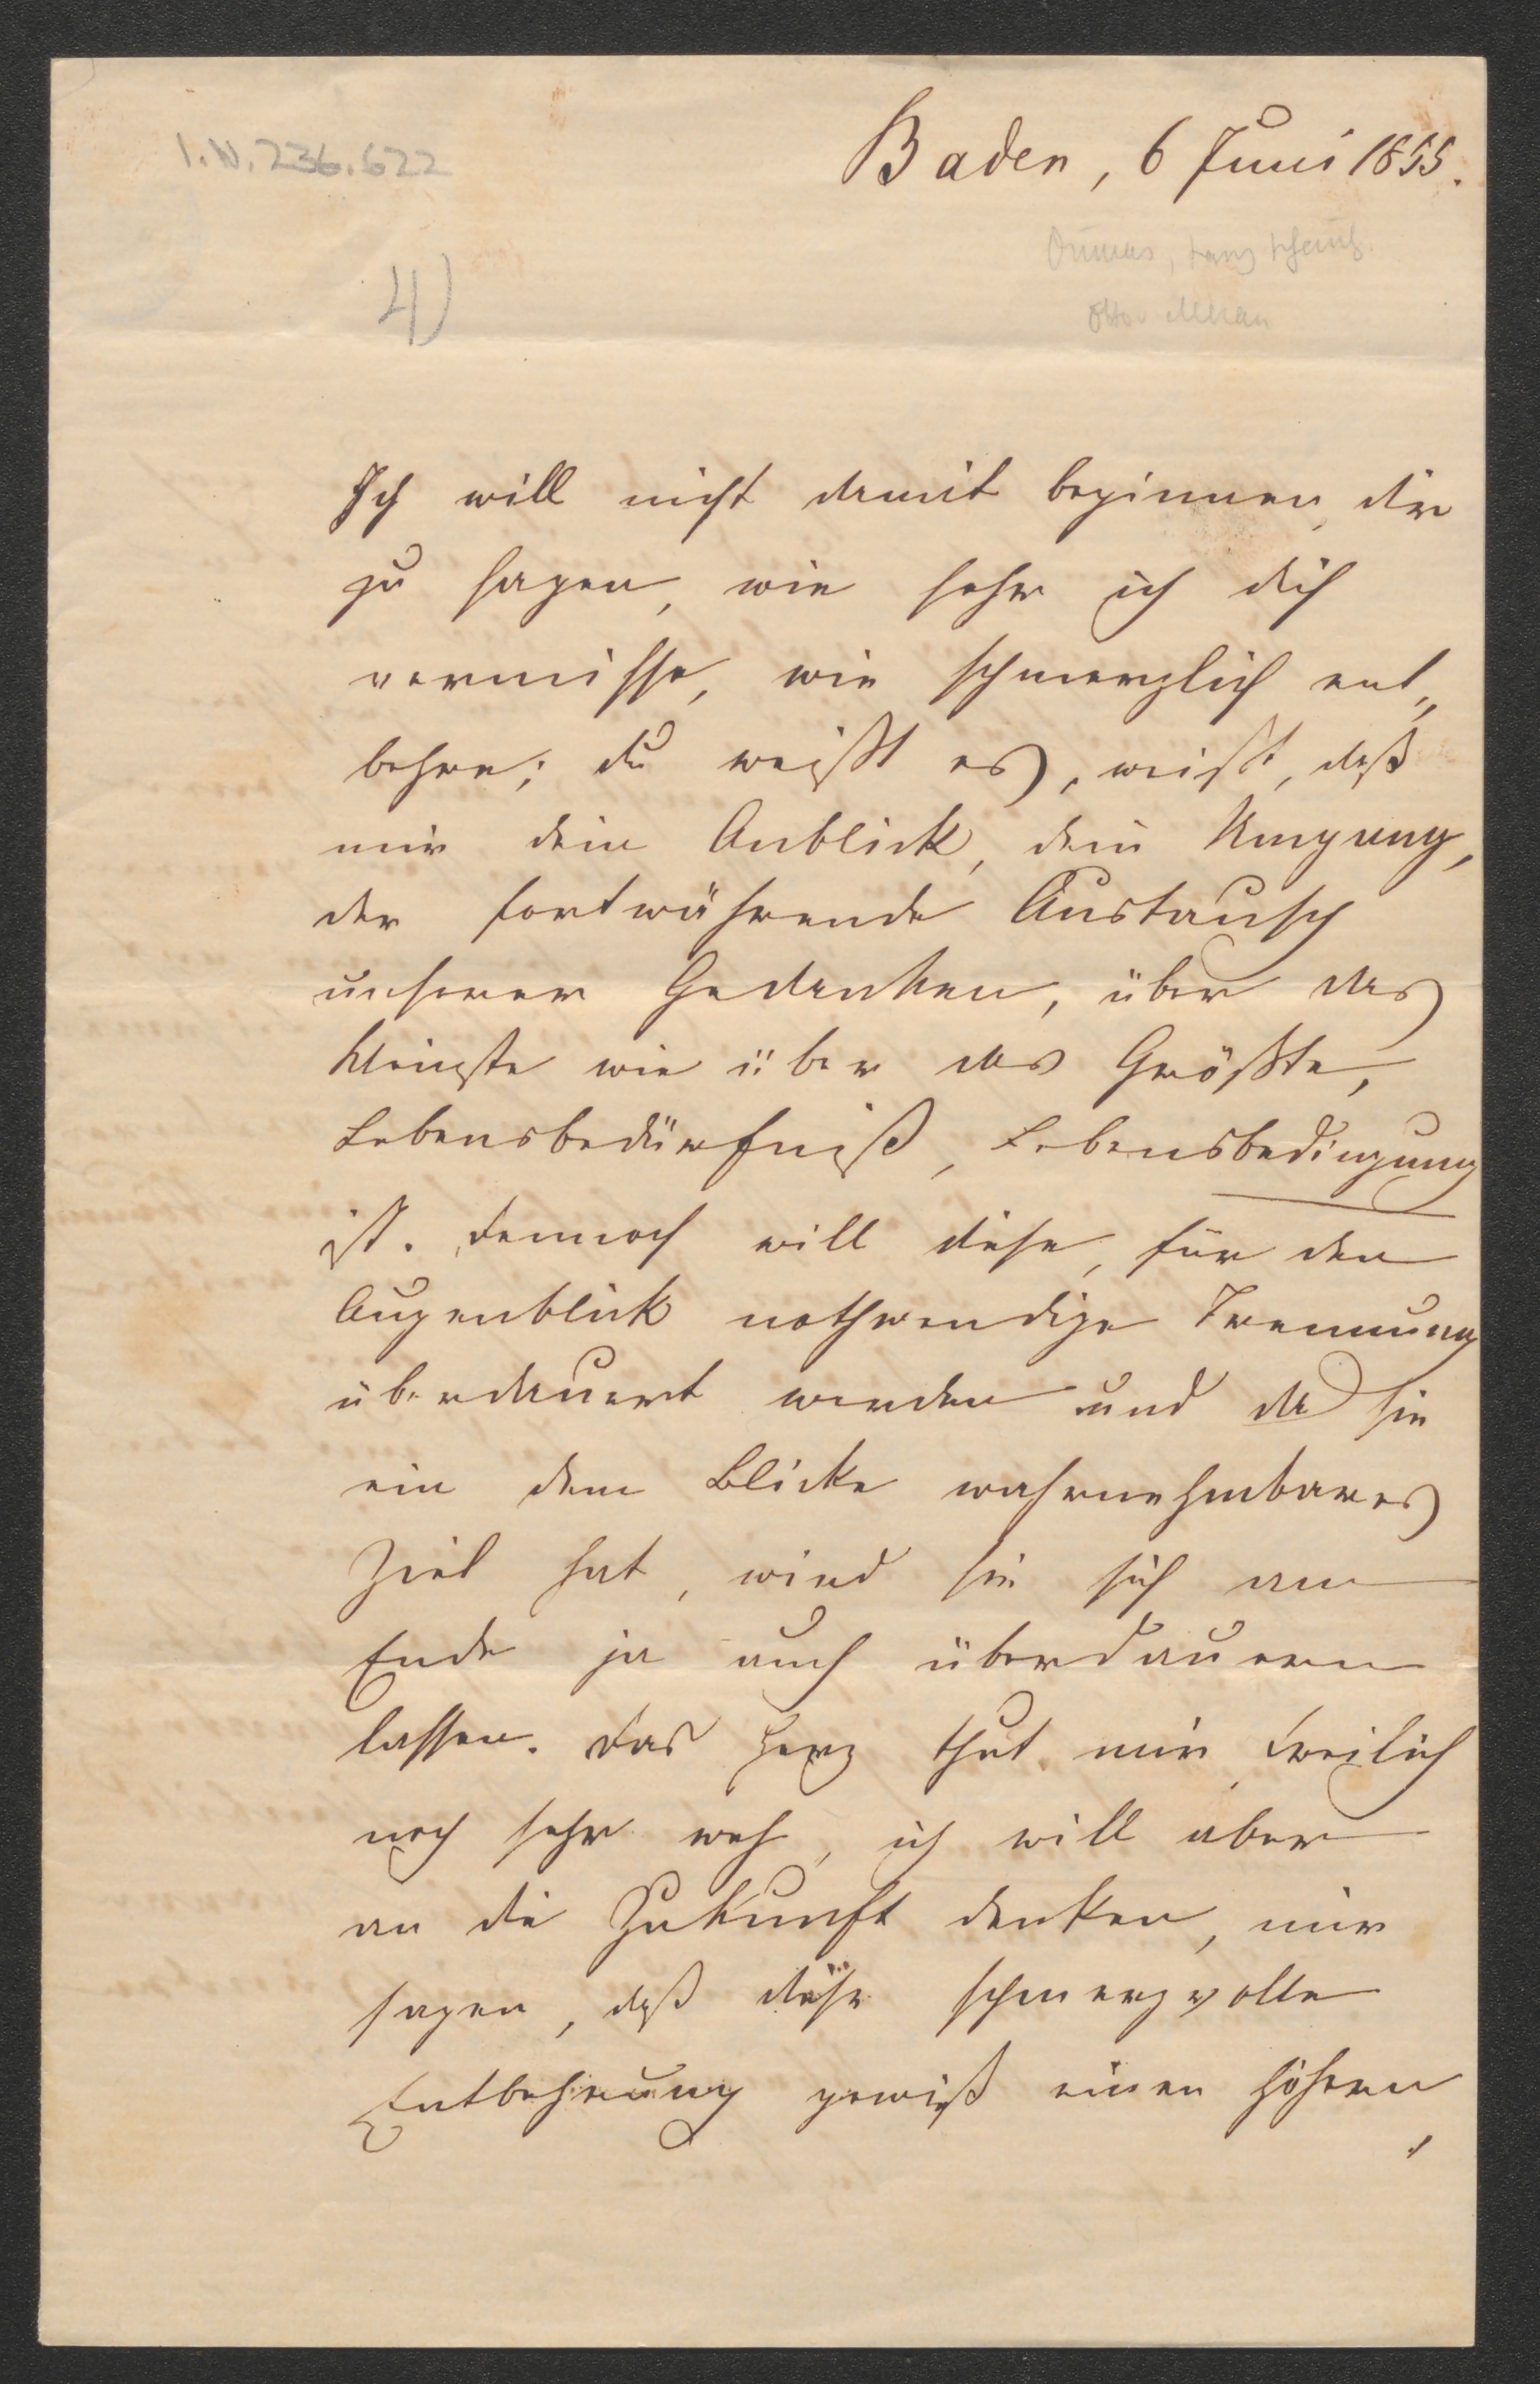 I.N. 236.622
Baden, 6 Juni 1855.
4)
Ich will nicht damit beginnen, dir
zu sagen, wie sehr ich dich
vermisse, wie schmerzlich ent„
behre; du weißt es, weißt, daß
mir dein Anblick, dein Umgang,
der fortwährende Austausch
unserer Gedanken, über das
Kleinste wie über das Größte,
Lebensbedürfniß, Lebensbedingung
ist. Dennoch will diese, für den
Augenblick nothwendige Trennung
überdauert werden und da sie
ein dem Blicke wahrnehmbares
Ziel hat, wird sie sich am
Ende ja auch überdauern
lassen. Das Herz thut mir freilich
noch sehr weh, ich will aber
an die Zukunft denken, mir
sagen, daß diese schmerzvolle
Entbehrung gewiß einen höhern